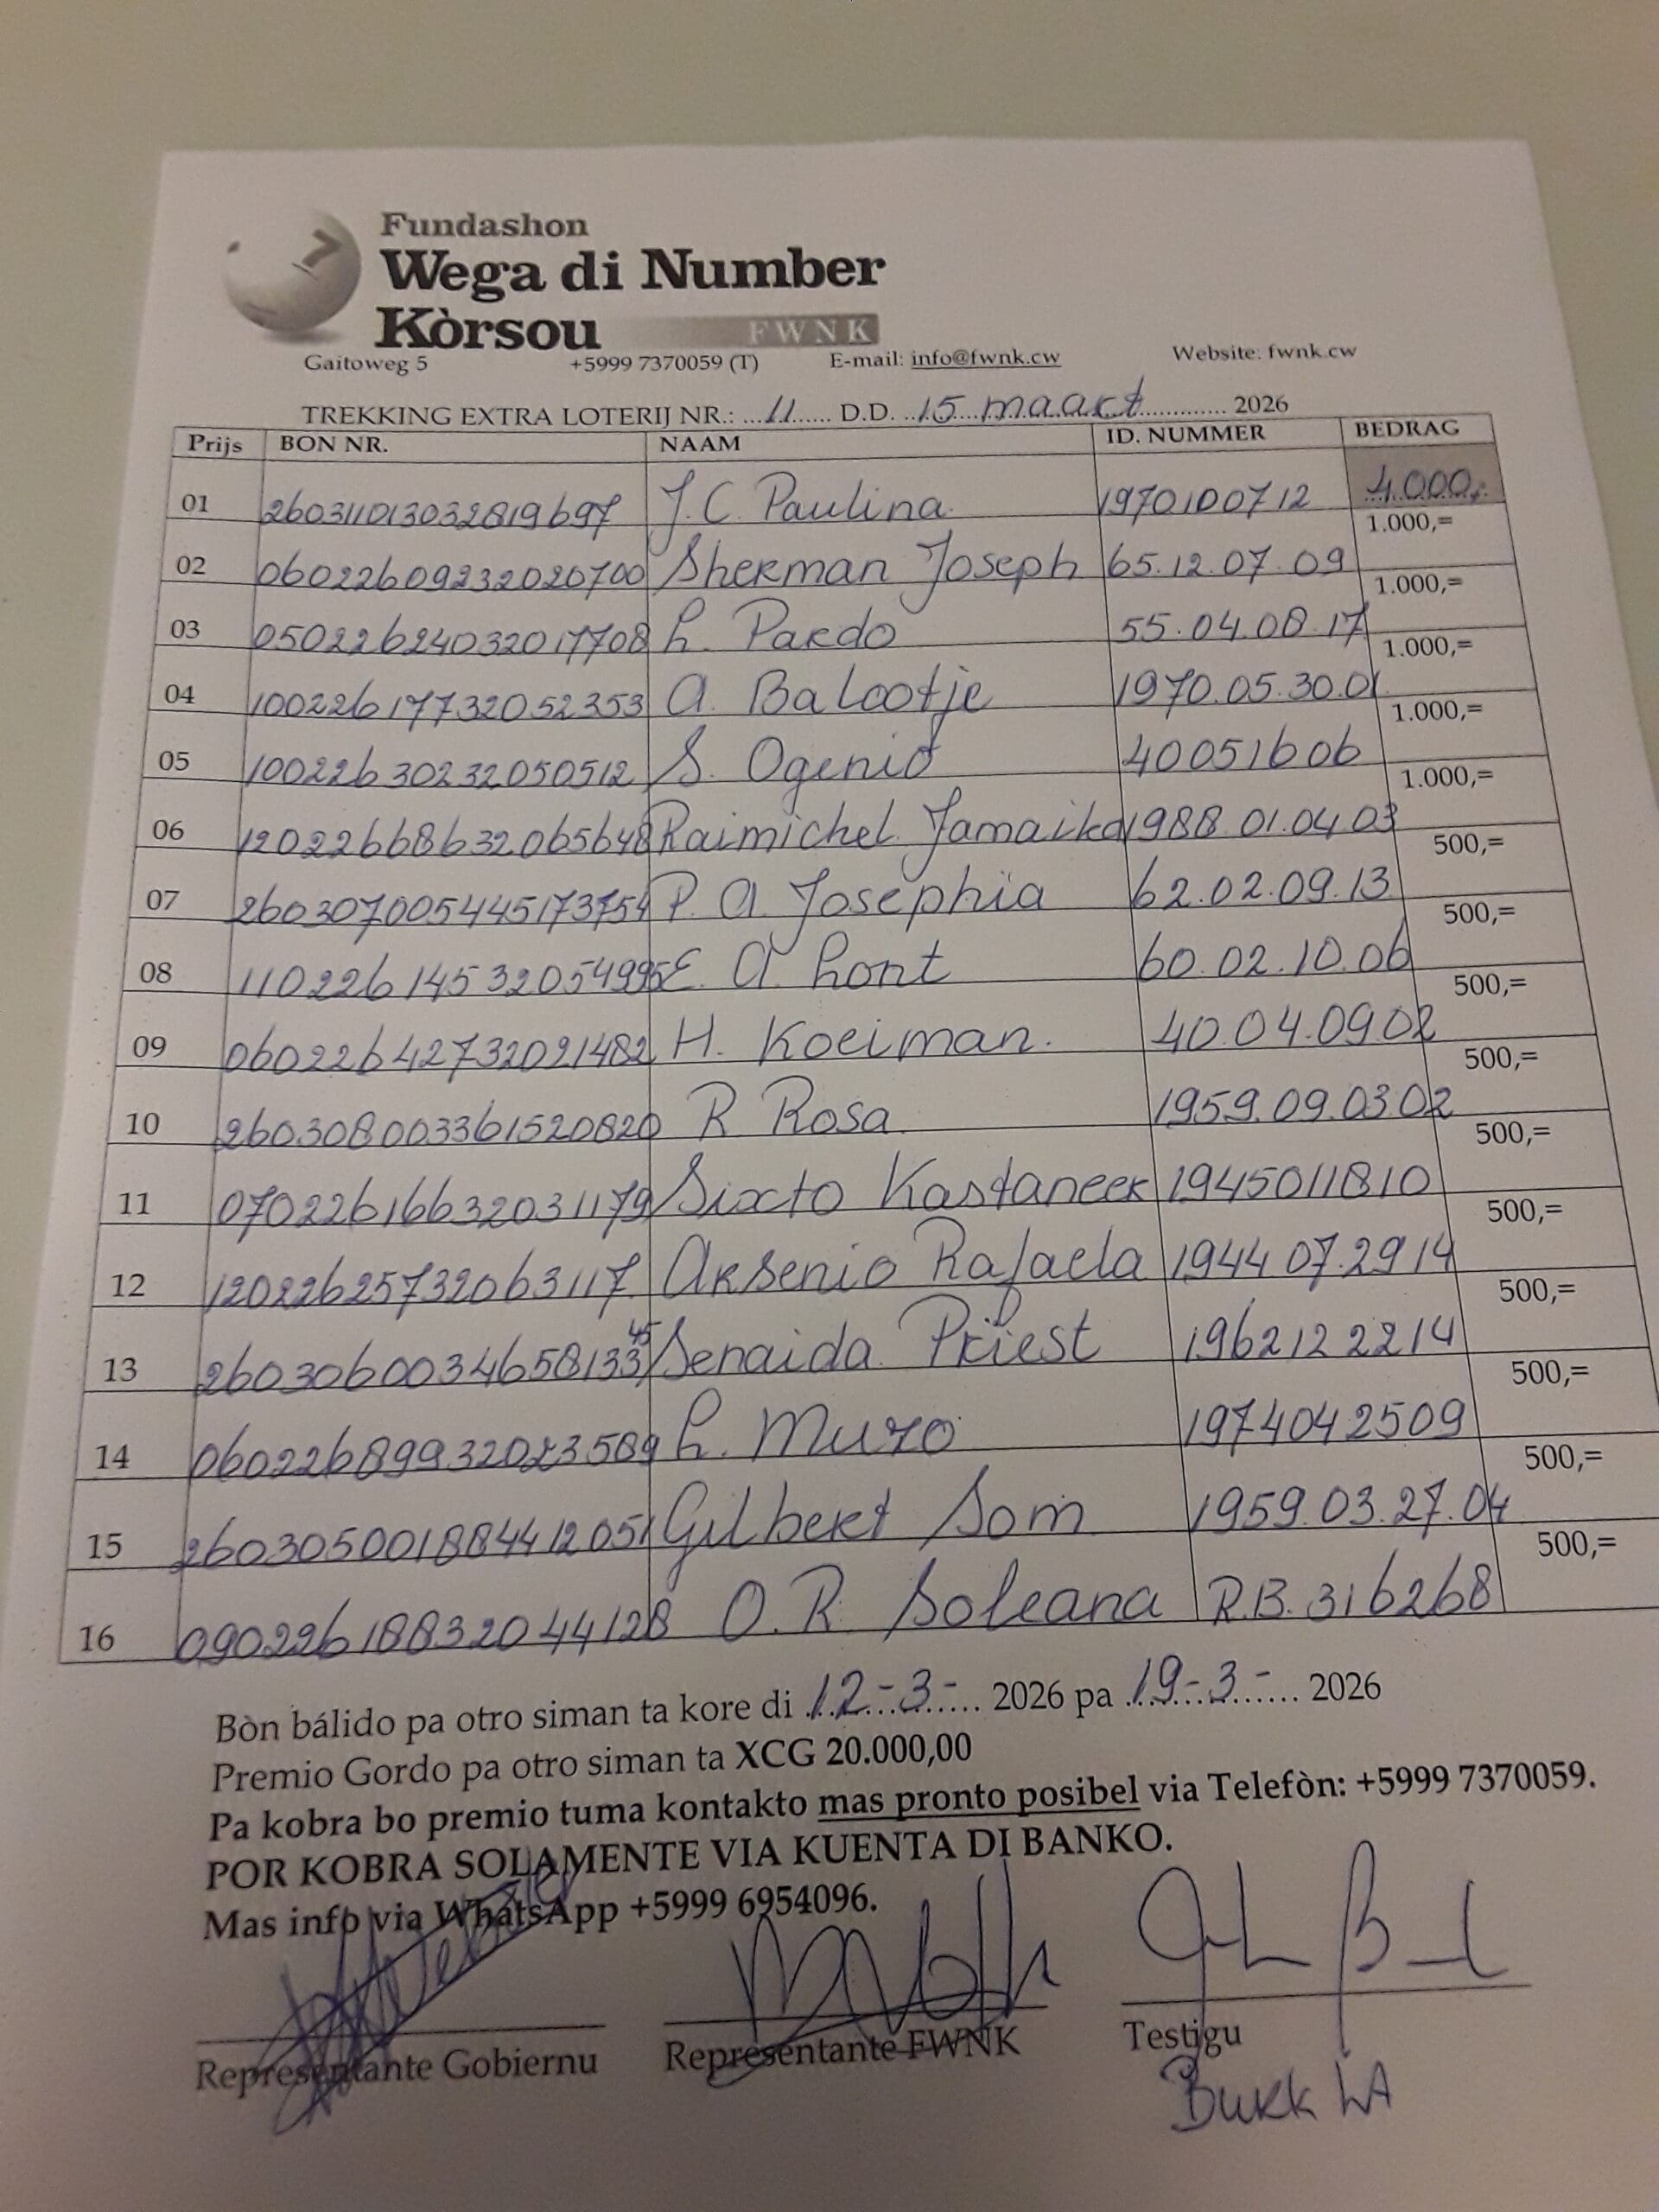 Fundashon
Wega di Number
Kòrsou FWNK
Gaitoweg 5 +5999 7370059 (T) E-mail: info@fwnk.cw Website: fwnk.cw
TREKKING EXTRA LOTERIJ NR.: 11 D.D. 15 maart 2026
Prijs BON NR. NAAM ID. NUMMER BEDRAG
01 26031101303281 9697 J.C. Paulina 1970100712 4.000,-
02 0602260923202070 0 Sherman Joseph 65.12.07.09 1.000,=
03 05022624032017708 L. Pardo 55.04.08.17 1.000,=
04 10022617732052353 A. Balootje 1970.05.30.01 1.000,=
05 10022630232050512 S. Ogenio 40051606 1.000,=
06 12022668632065648 Raimichel Jamaika 1988.01.04.03 1.000,=
07 2603070054451 73754 P. A. Josephia 62.02.09.13 500,=
08 11022614532054995 E. A. Lont 60.02.10.06 500,=
09 06022642732021482 H. Koeiman. 40.04.09.02 500,=
10 260308003361520820 R Rosa 1959.09.03 02 500,=
11 07022616632031179 Sixto Kastaneer 1945011810 500,=
12 12022625732063117 Arsenio Rafaela 1944.07.29 14 500,=
13 26030600346581 3345 Senaida Priest 1962122214 500,=
14 06022689932023589 L. Muzo 1974042509 500,=
15 260305001884412051 Gilbert Som 1959.03.27.04 500,=
16 09022618832044128 O.R. Soleana R.B. 316268 500,=
Bòn bálido pa otro siman ta kore di 12-3- 2026 pa 19-3- 2026
Premio Gordo pa otro siman ta XCG 20.000,00
Pa kobra bo premio tuma kontakto mas pronto posibel via Telefòn: +5999 7370059.
POR KOBRA SOLAMENTE VIA KUENTA DI BANKO.
Mas info via WhatsApp +5999 6954096.
Representante Gobiernu Representante FWNK Testigu
Burk LA